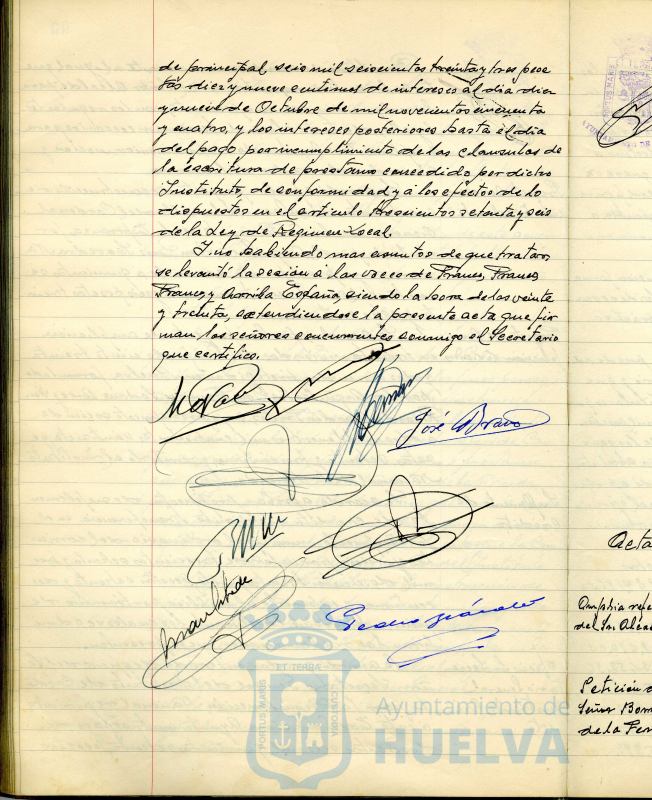 de principal seis mil seiscientos treinta y tres pese
tas diez y nueve centimos de intereses al dia diez
y nueve de Octubre de mil novecientos cincuenta
y cuatro, y los intereses posteriores hasta el dia
del pago, por incumplimiento de las clausulas de
la escritura de prestamo concedido por dicho
Instituto, de conformidad y a los efectos de lo
dispuestos en el articulo trescientos setenta y seis
de la Ley de Regimen Local.
Y no habiendo mas asuntos de que tratar,
se levantó la sesion a las voces de Franco, Franco,
Franco, y Arriba España, siendo la hora de las veinte
y treinta, extendiendose la presente acta que fir
man los señores concurrentes conmigo el Secretario
que certifico.
José Bravo
Pedro
Acta
Amplia refe
del Sr. Alca
Peticion d
Señor Borr
de la Fer
ET TERRAE
PORTUS MARIS
CUSTODIA
Ayuntamiento de
HUELVA